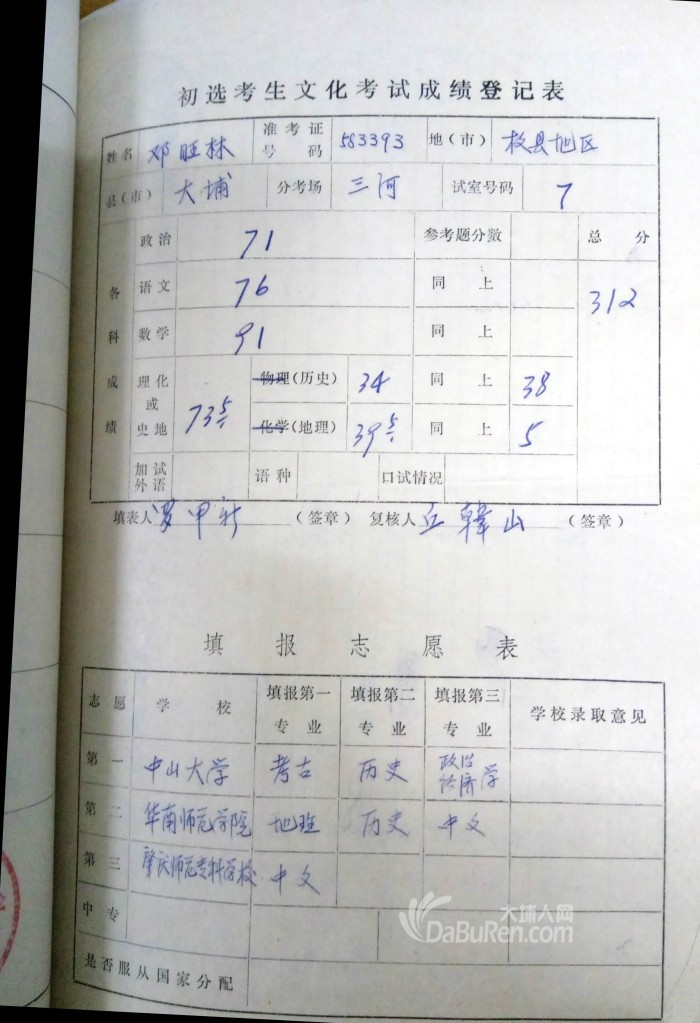 初选考生文化考试成绩登记表
姓名 邓旺林 准考证号码 583393 地(市) 梅县地区
县(市) 大埔 分考场 三河 试室号码 7
各科成绩 政治 71 参考题分数 总分 312
语文 76 同上
数学 91 同上
理化或史地 73.5 物理(历史) 34 同上 38
化学(地理) 39.5 同上 5
加试外语 语种 口试情况
填表人 罗甲新 (签章) 复核人 丘韓山 (签章)
填报志愿表
志愿 学校 填报第一专业 填报第二专业 填报第三专业 学校录取意见
第一 中山大学 考古 历史 政治经济学
第二 华南师范学院 地理 历史 中文
第三 肇庆师范专科学校 中文
中专
是否服从国家分配
大埔人网
DaBuRen.com